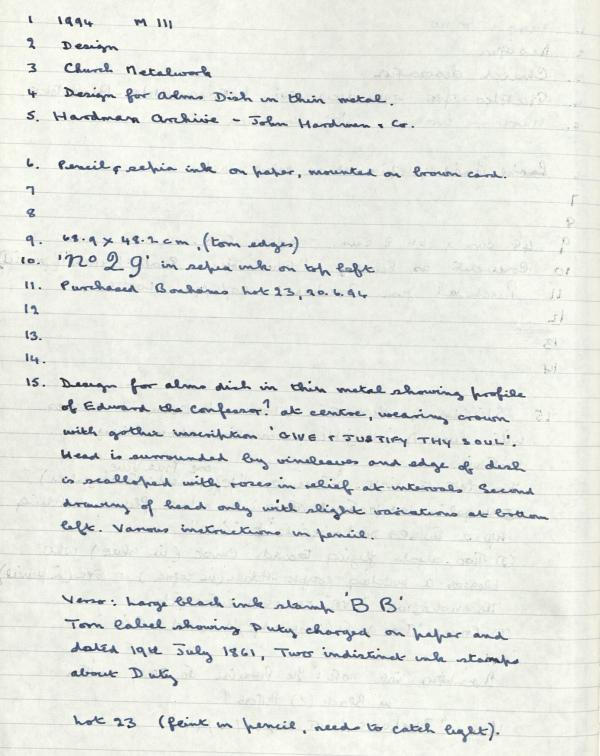 1 1994 M III
2 Design
3 Church Metalwork
4 Design for Alms Dish in thin metal.
5. Hardman Archive - John Hardman & Co.
6. Pencil & sepia ink on paper, mounted on brown card.
7
8
9. 68.9 x 48.2 cm, (torn edges)
10. 'no 29' in sepia ink on top left
11. Purchased Bonhams Lot 23, 20.6.94
12
13.
14.
15. Design for alms dish in thin metal showing profile
of Edward the Confessor? at centre, wearing crown
with gothic inscription 'GIVE & JUSTIFY THY SOUL'.
Head is surrounded by vineleaves and edge of dish
is scalloped with roses in relief at intervals Second
drawing of head only with slight variations at bottom
left. Various instructions in pencil.
Verso: Large black ink stamp 'B B'
Torn label showing Duty charged on paper and
dated 19th July 1861, Two indistinct ink stamps
about Duty
Lot 23 (feint in pencil, needs to catch light).